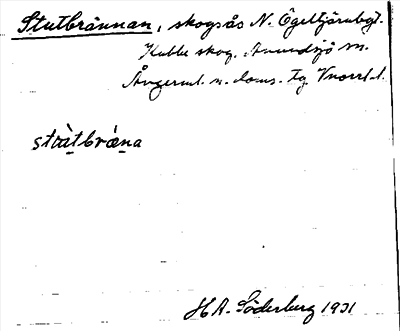 Stutbrännan, skogsås N. Ögeltjärnbgt.
Kubbe skog. Anundsjö sn.
Ångerml. n. doms. tg Vnorrl. l.
stùtbrä̀na
H A. Söderberg 1931